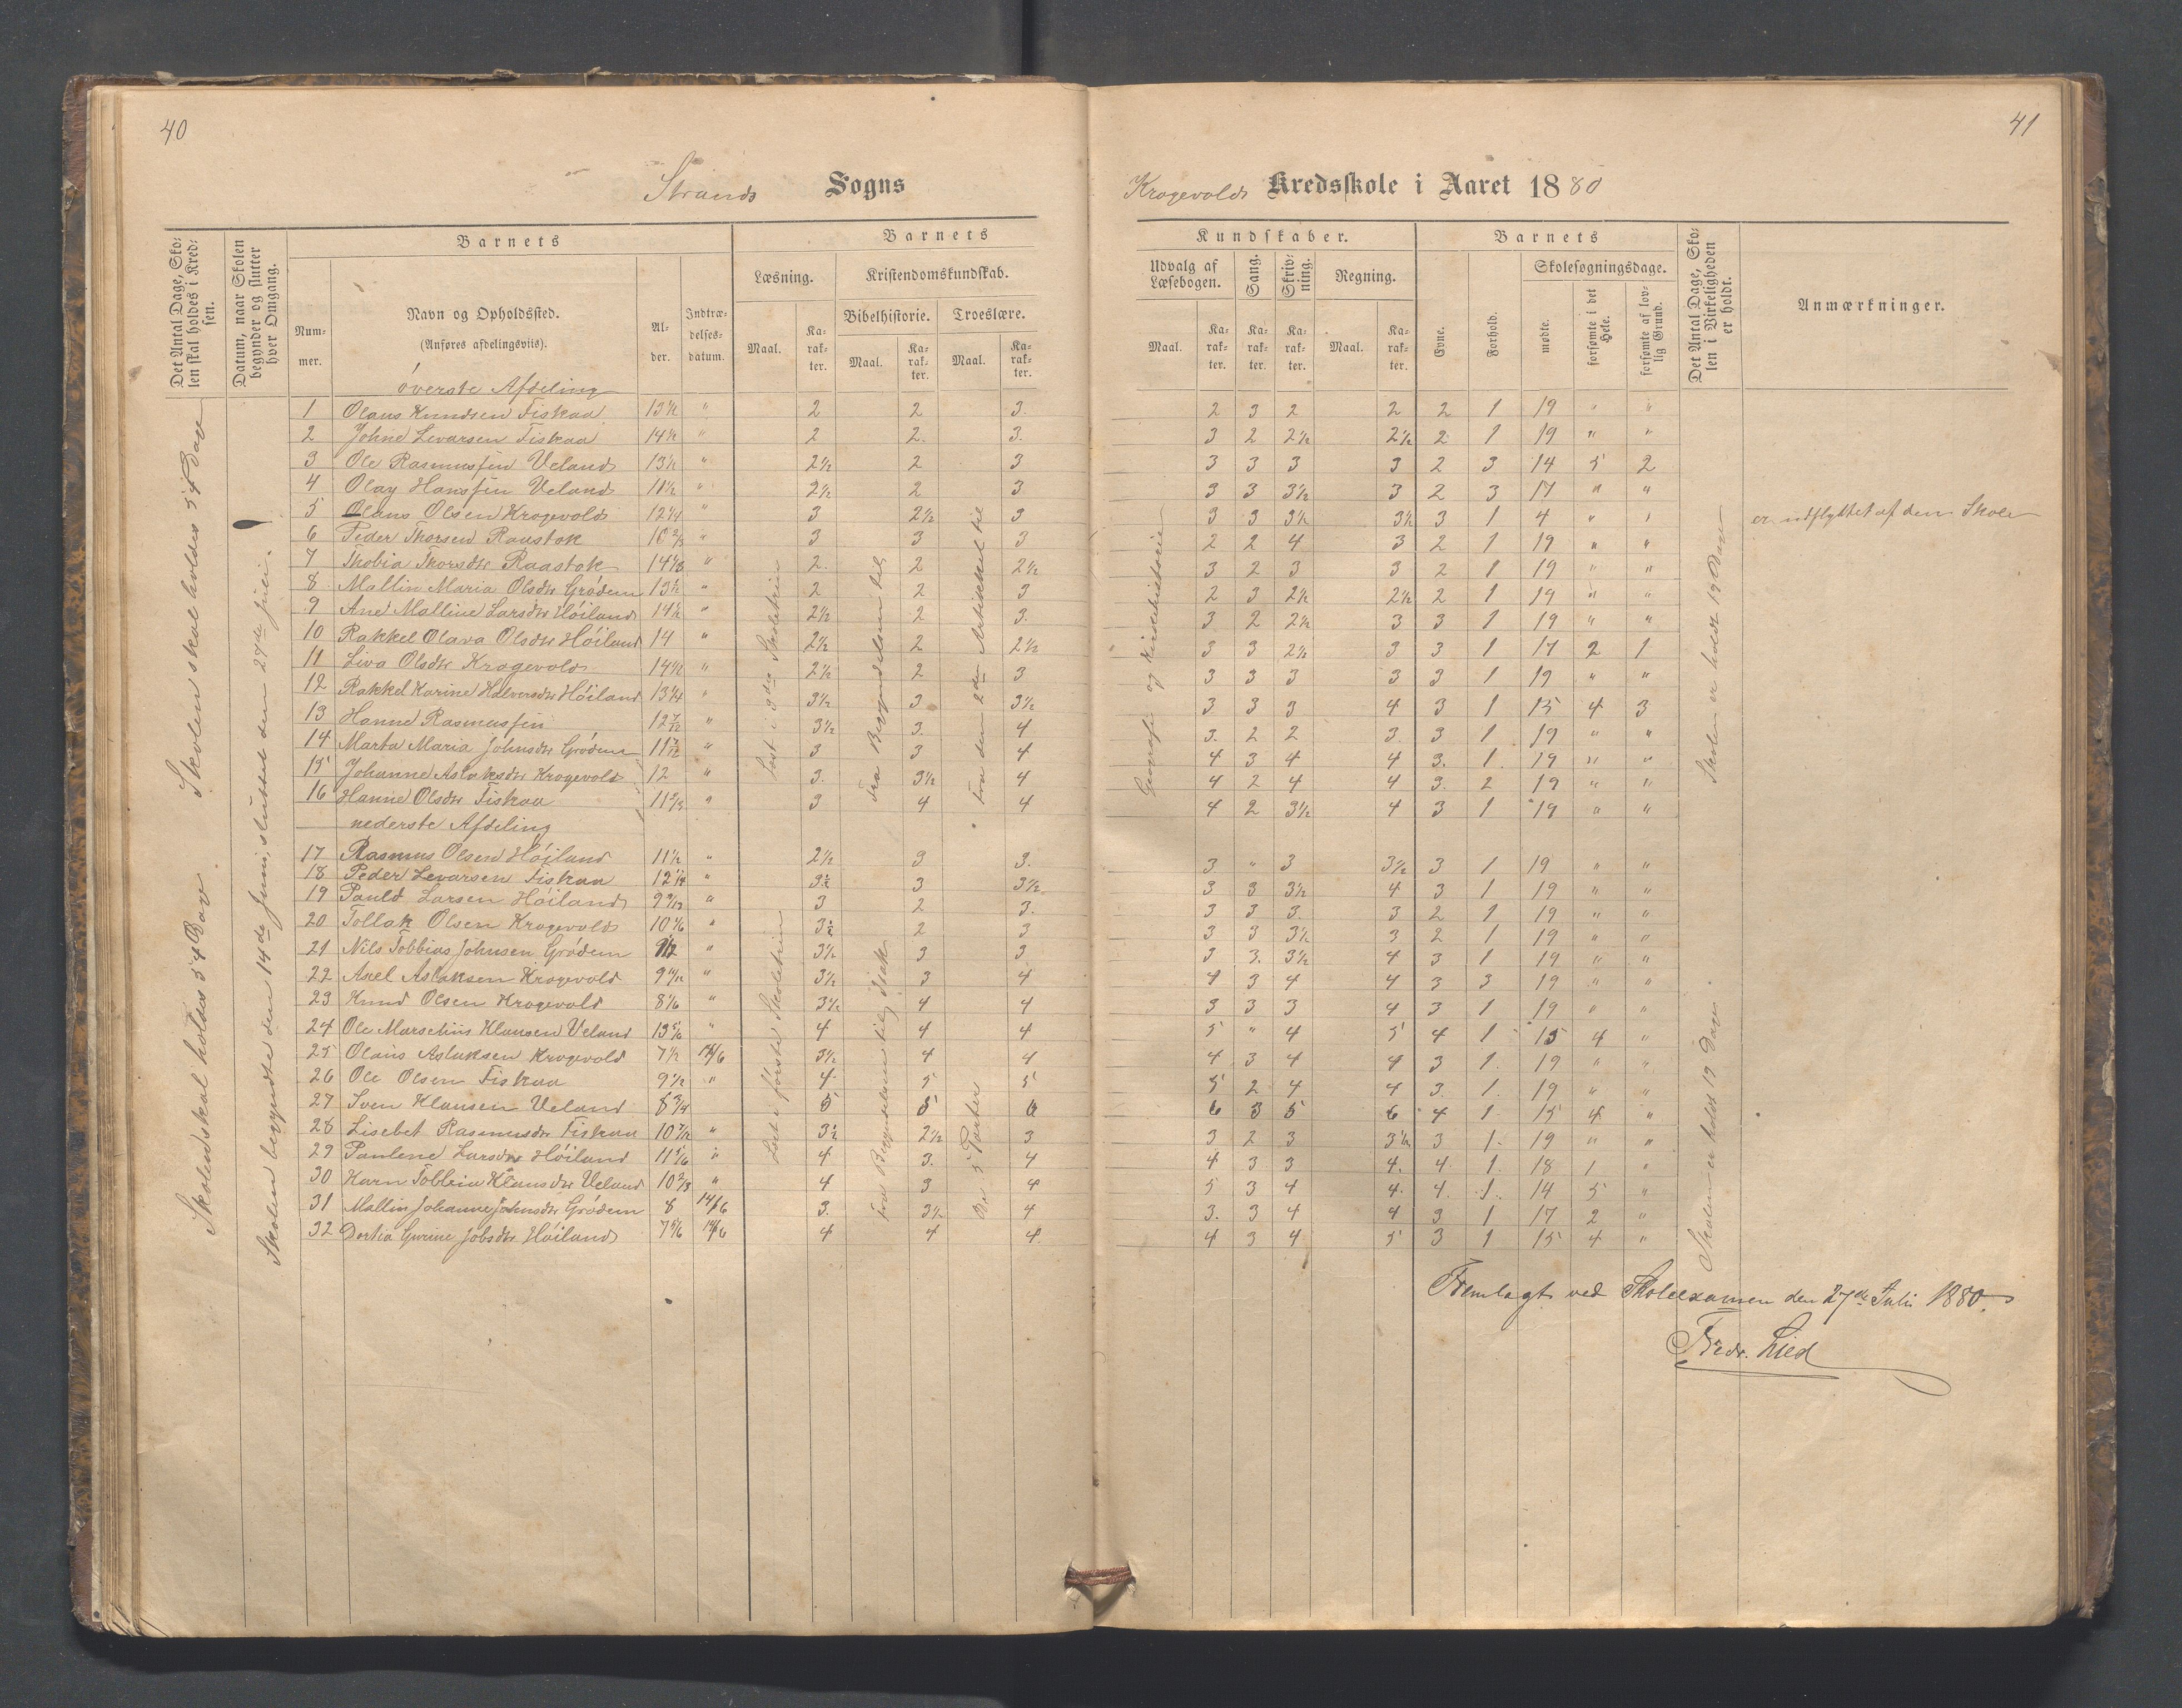 40
Strands Sogns
Det Antal Dage, Skolen skal holdes i Kredsen.
Datum, naar Skolen begynder og slutter hver Omgang.
Barnets
Nummer.
Navn og Opholdssted.
(Anføres afdelingsviis).
Alder.
Indtrædelsesdatum.
Barnets
Læsning.
Kristendomskundskab.
Bibelhistorie.
Troeslære.
Maal.
Karakter.
Maal.
Karakter.
Maal.
Karakter.
øverste Afdeling
1 Olaus Knudsen Fiskaa 13½ " 2 2 3.
2 Johne Levarsen Fiskaa 14½ " 2 2. 3.
3 Ole Rasmussen Veland 13½ " 2½ 2 3
4 Olay Hanssen Veland 11½ " 2½ 2 3
5 Olaus Olsen Krogevold 12¼ " 3 2½ 3
6 Peder Thorsen Raastok 10⅔ " 3 3 3
7 Thobia Thorsdtr Raastok 14⅓ " 2. 2 2½
8 Mallin Maria Olsdtr Grødem 13½ " 2 2 3
9 Ane Malline Larsdtr Høiland 14½ " 2½ 2 3.
10 Rakkel Olava Olsdtr Høiland 14 " 2½ 2 2½
11 Liva Olsdtr Krogevold 14½ " 2½ 2 3
12 Rakkel Karine Halversdtr Høiland 13¼ " 3½ 3 3½
13 Hanne Rasmussen 12 7/12 " 3½ 3. 4
14 Marta Maria Johnsdtr Grødem 11 7/12 " 3 3 4
15 Johanne Aslaksdtr Krogevold 12 " 3. 3½ 4
16 Hanne Olsdtr Fiskaa 11⅔ " 3 4 4
nederste Afdeling
17 Rasmus Olsen Høiland 11½ " 2½ 3 3.
18 Peder Levarsen Fiskaa 12¼ " 3½ 3 3½
19 Pauld Larsen Høiland " 3 2 3.
20 Tollak Olsen Krogevold 10⅙ " 3½ 2 3
21 Nils Tobbias Johnsen Grødem " 3½ 3 3
22 Axel Aslaksen Krogevold " 3½ 3 4
23 Knud Olsen Krogevold 8⅙ " 3½ 4 4
24 Ole Marselius Klausen Veland 13⅚ " 4 4 4
25 Olaus Aslaksen Krogevold 7½ 14/6 3½ 4 4
26 Ole Olsen Fiskaa 9½ " 4 5 5
27 Sven Klausen Veland 8¾ 5 5 6
28 Lisebet Rasmusdtr Fiskaa 10 7/12 " 3½ 2½ 3
29 Paulene Larsdtr Høiland 11⅙ " 4 3. 4
30 Karn Tobbia Klausdtr Veland 10⅔ " 4 3 4
31 Mallin Johanne Johnsdtr Grødem 8 14/6 3. 3½ 4
32 Dortia Gurine Jobsdtr Høiland 7⅚ 14/6 4 4 4
Skolen skal holdes 54 Dage
Skolen skal holdes 54 Dage
Skolen begyndte den 14de Juni, sluttet den 27de Juli.
Læst i 3die Skoletrin
Fra Begyndelsen til
Fra den 2den Artikkel til
Læst i første Skoletrin
Fra Begyndelsen til Isak
De 5 Parter
41
Krogevolds Kredsskole i Aaret 1880
Kundskaber.
Udvalg af Læsebogen.
Sang.
Skrivning.
Regning.
Maal.
Karakter.
Karakter.
Karakter.
Maal.
Karakter.
Barnets
Evne.
Forhold.
Skolesøgningsdage.
mødte.
forsømte i det Hele.
forsømte af lovlig Grund.
Det Antal Dage, Skolen i Virkeligheden er holdt.
Anmærkninger.
2 3 2 2 2 1 19 " "
3 2 2½ 2½ 2 1 19 " "
3 3 3 3 2 3 14 5 2
3 3 3½ 3 2 3 17 " "
3 3 3½ 3½ 3 1 4 " " er udflyttet af den Skole
2 2 4 3 2 1 19 " "
3 2 3 3 2 1 19 " "
2 3 2½ 2½ 2 1 19 " "
3 2 2½ 3 3 1 19 " "
3 3 2½ 3 3 1 17 2 1
3 3 3 3 3 1 19 " "
3 3 3 4 3 1 15 4 3
3. 2 2 3. 3 1 19 " "
4 3 4 4 3. 1. 19 " "
4 2 4 4 3. 2 19 " "
4 2 3½ 4 3 1 19 " "
3 " 3 3½ 3 1 19 " "
3 3 3½ 4 3 1 19 " "
3 3 3. 3 2 1 19 " "
3 3 3½ 3 2 1 19 " "
3 3. 3½ 4 3 1 19 " "
4 3 4 4 3 3 19 " "
3 3 3 4 3 1 19 " "
5 " 4 5 4 1 15 4 "
4 3 4 4 3 1. 19 " "
5 2 4 4 3. 1. 19 " "
6 3 5 6 4 1 15 4 "
3 2 3 3½ 3 1. 19 " "
4 3 3 4. 4 1. 18 1 "
5 3 4 4. 4. 1. 14 5 "
3. 3 4 4 3 1 17 2 "
4 3 4 5 3 1 15 4 "
Geografi og Kirkehistorie
Skolen er holdt 19 Dage
Skolen er holdt 19 Dage.
Fremlagt ved Skoleexamen den 27de Juli 1880.
Fredr. Lied